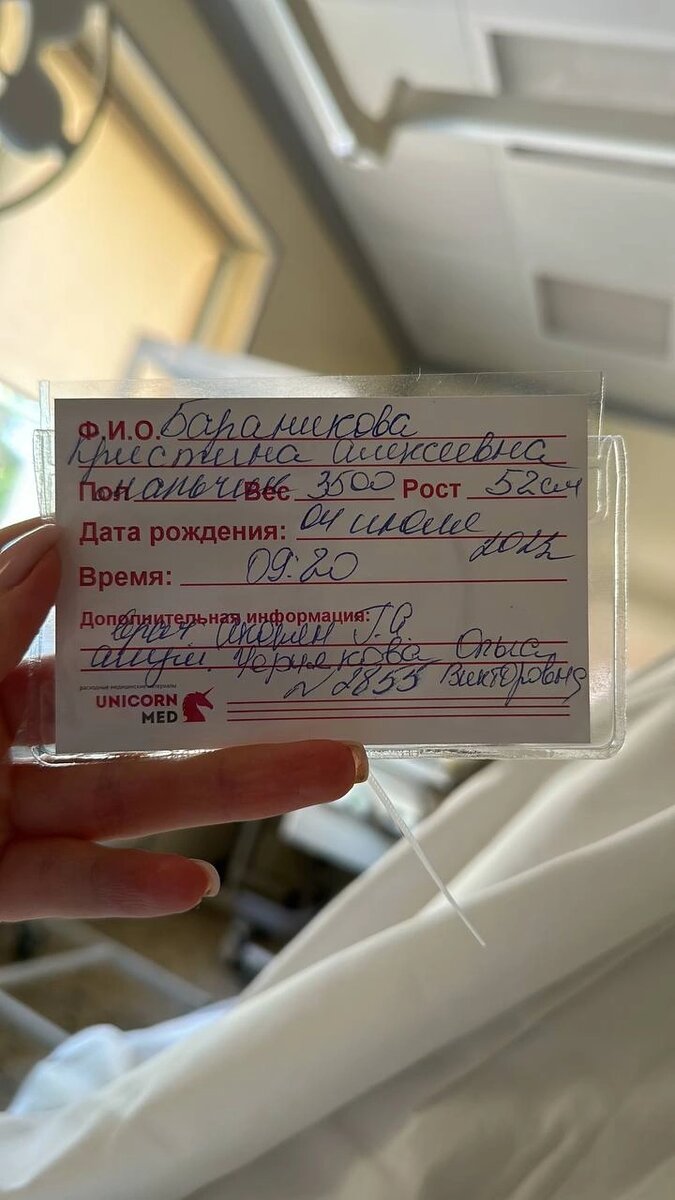 Ф.И.О. Бараникова
Кристина Алексеевна
Пол мальчик Вес 3500 Рост 52см
Дата рождения: 04 июля
2022
Время: 09:20
Дополнительная информация:
врач Г.А
акуш. Чернякова
N 2855 Викторовна
расходные медицинские материалы
UNICORN
MED